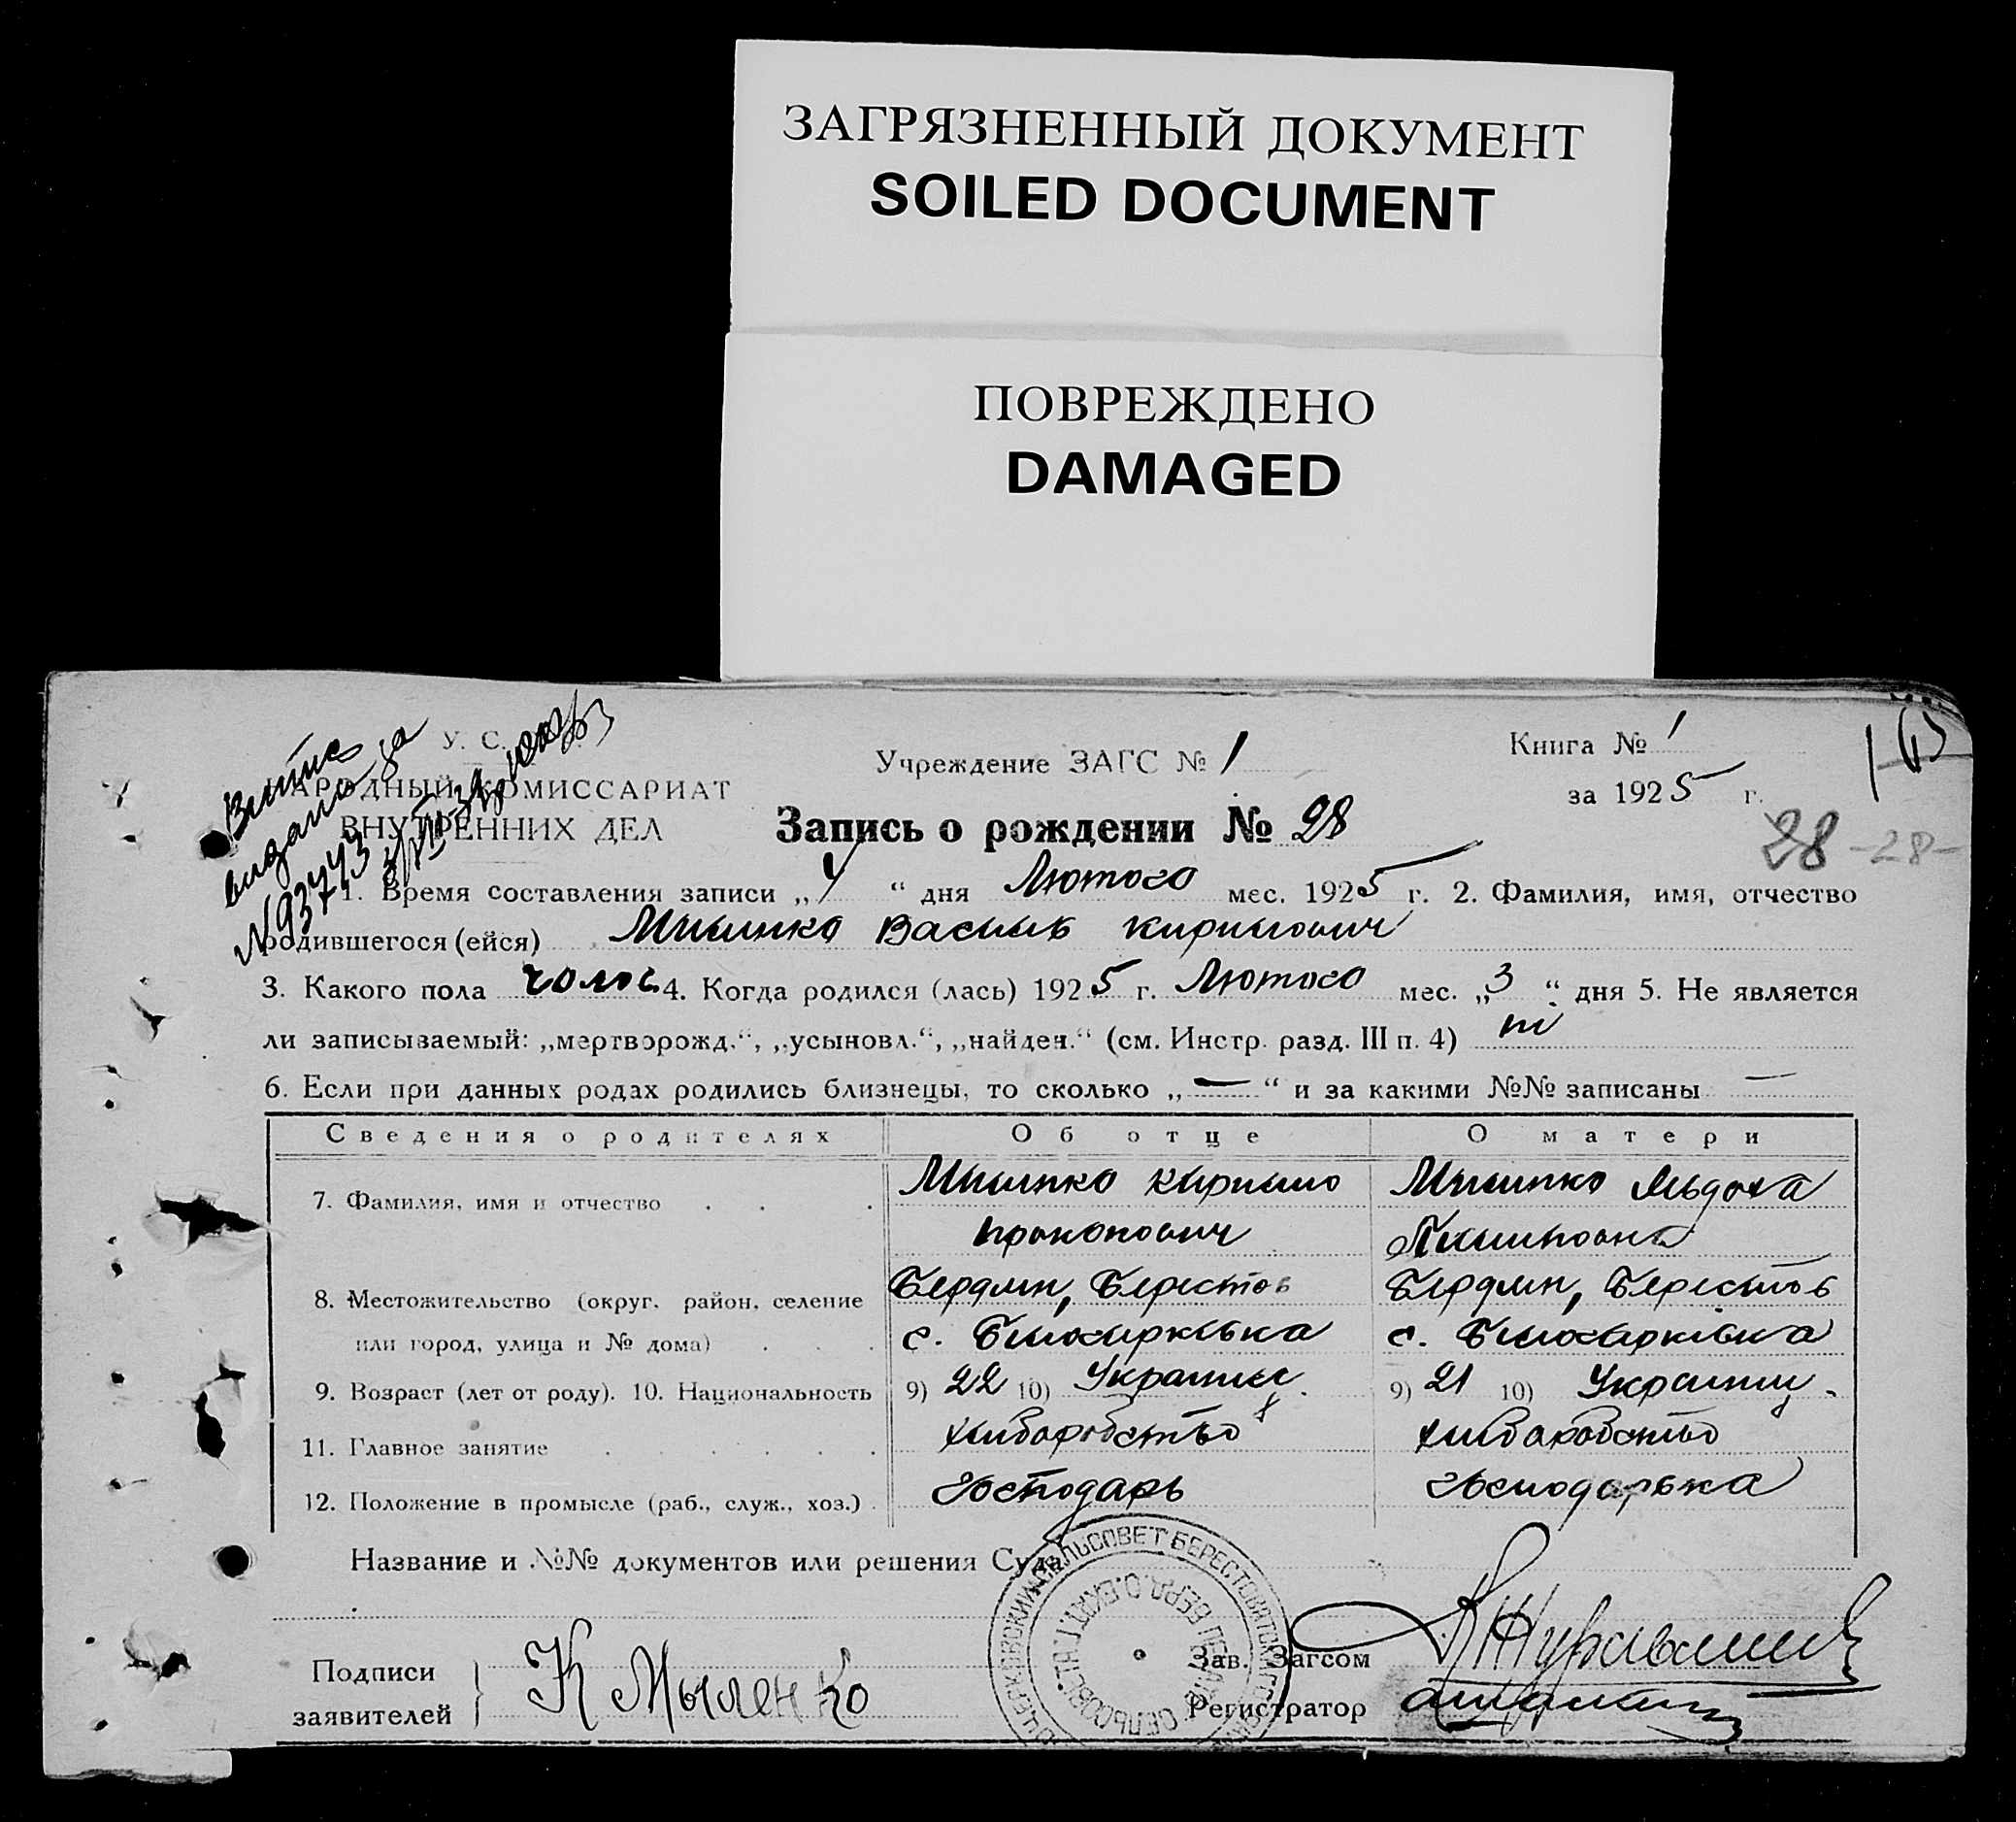 ЗАГРЯЗНЕННЫЙ ДОКУМЕНТ
SOILED DOCUMENT
ПОВРЕЖДЕНО
DAMAGED
У. С.
АРОДНЫЙ КОМИССАРИАТ
ВНУТРЕННИХ ДЕЛ
Витяг
видано за
N 93743
Учреждение ЗАГС № 1
Книга № 1
за 1925 г.
Запись о рождении № 28
28 -28-
1. Время составления записи „4“ дня Лютого мес. 1925 г. 2. Фамилия, имя, отчество
родившегося (ейся) Василь Кирилович
3. Какого пола чолос. 4. Когда родился (лась) 1925 г. Лютого мес. „3“ дня 5. Не является
ли записываемый: „мертворожд.“, „усыновл.“, „найден.“ (см. Инстр. разд. III п. 4) ні
6. Если при данных родах родились близнецы, то сколько „—“ и за какими №№ записаны —
Сведения о родителях Об отце О матери
7. Фамилия, имя и отчество Кирило
Прокопович
8. Местожительство (округ, район, селение Бердян, Берестов Бердян, Берестов
или город, улица и № дома) с. Білоцерківка с. Білоцерківка
9. Возраст (лет от роду). 10. Национальность 9) 22 10) Українец 9) 21 10) Україн.
11. Главное занятие хліборобство хліборобство
12. Положение в промысле (раб., служ., хоз.) Господарь Господарька
Название и №№ документов или решения Суда
ЦЕРКОВСКИЙ СЕЛЬСОВЕТ БЕРЕСТОВАТСКОГО
Подписи
заявителей К Мыленко
Зав. Загсом
Регистратор